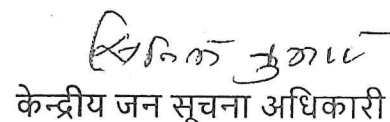 कुमार
केन्द्रीय जन सूचना अधिकारी